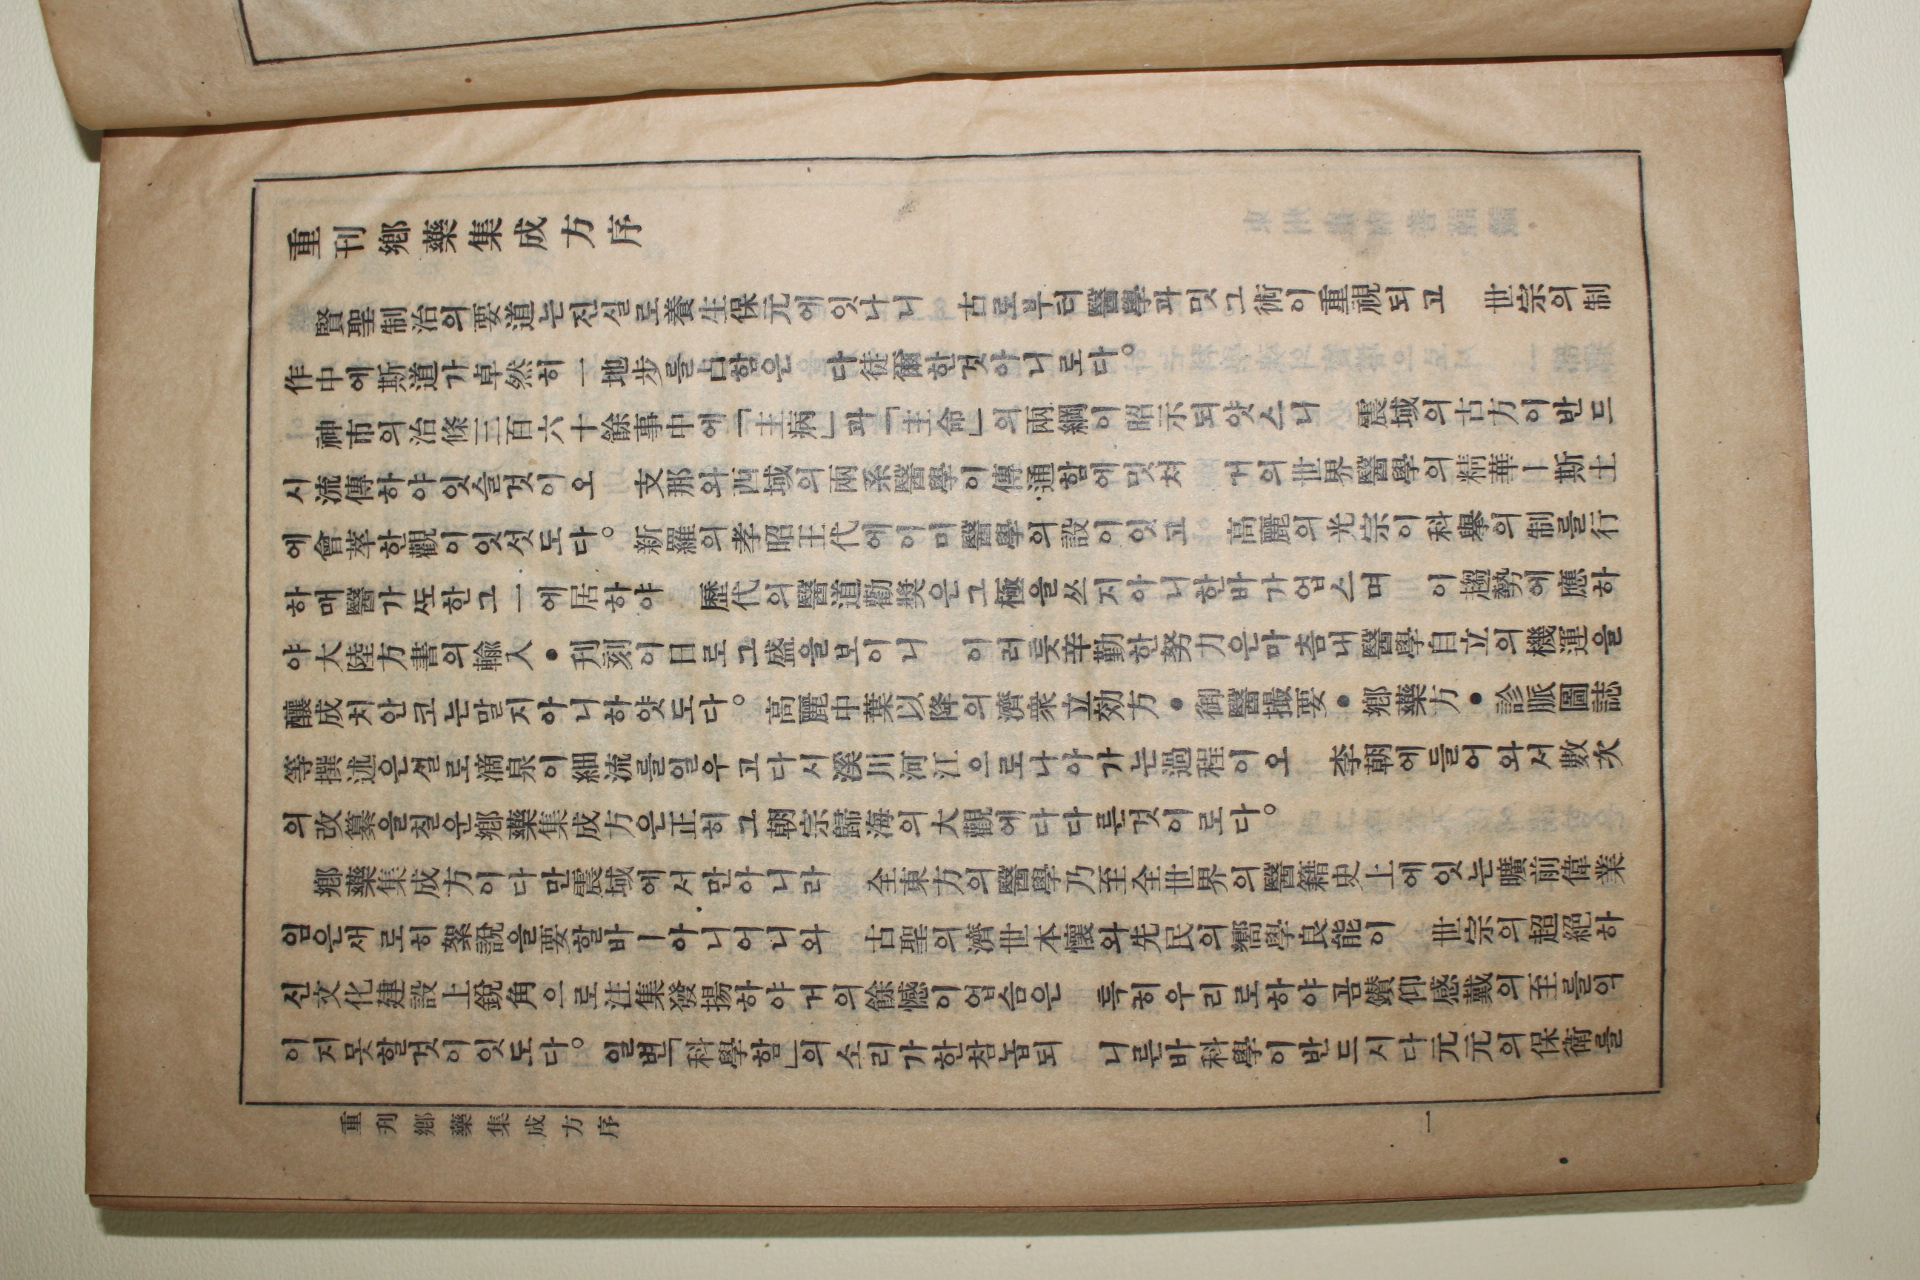 重刊鄕藥集成方序
賢聖制治의要道는진실로養生保元에잇나니 古로부터醫學과밋그術이重視되고 世宗의制
作中에斯道가卓然히一地步를占함은 다徒爾한것아니로다。
神市의治條三百六十餘事中에「主病」과「主命」의兩綱이昭示되얏스니 震域의古方이반드
시流傳하야잇슬것이오 支那와西域의兩系醫學이傳通함에밋쳐 거의世界醫學의精華ㅣ斯土
에會萃한觀이잇섯도다。新羅의孝昭王代에이미醫學의設이잇고 高麗의光宗이科擧의制를行
하매醫가ᄯᅩ한그一에居하야 歷代의醫道勸奬은그極을쓰지아니한바가업스며 이趨勢에應하
야大陸方書의輸入•刋刻이日로그盛을보이니 이러틋辛勤한努力은마츰내醫學自立의機運을
釀成치안코는말지아니하얏도다。高麗中葉以降의濟衆立効方•御醫撮要•鄕藥方•診脈圖誌
等撰述은셜로滴泉이細流를일우고다시溪川河江으로나아가는過程이오 李朝에들어와서數次
의改纂을칠운鄕藥集成方은正히그朝宗歸海의大觀에다다른것이로다。
鄕藥集成方이다만震域에서만아니라 全東方의醫學乃至全世界의醫籍史上에잇는曠前偉業
임은새로히絮說을要할바ㅣ아니어니와 古聖의濟世本懷와先民의嚮學良能이 世宗의超絕하
신文化建設上銳角으로注集發揚하야거의餘憾이업슴은 특히우리로하야곰鑚仰感戴의至를익
이지못할것이잇도다。일변「科學함」의소리가한참놉되 니른바科學이반드시다元元의保衛를
重刋鄕藥集成方序
一